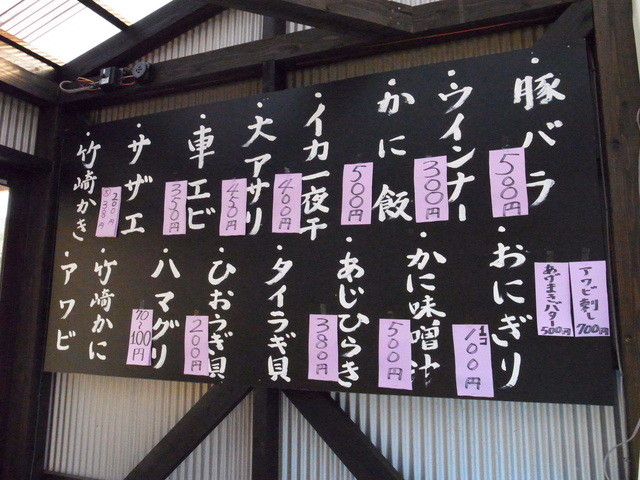 ・豚バラ
500円
・ウインナー
300円
・かに飯
500円
・イカ一夜干
400円
・大アサリ
450円
・車エビ
350円
・サザエ
200円
・竹崎かき
アワビ刺し
700円
あげまきバター
500円
・おにぎり
1コ
100円
・かに味噌汁
500円
・あじひらき
380円
・タイラギ貝
・ひおうぎ貝
200円
・ハマグリ
70〜100円
・竹崎かに
・アワビ